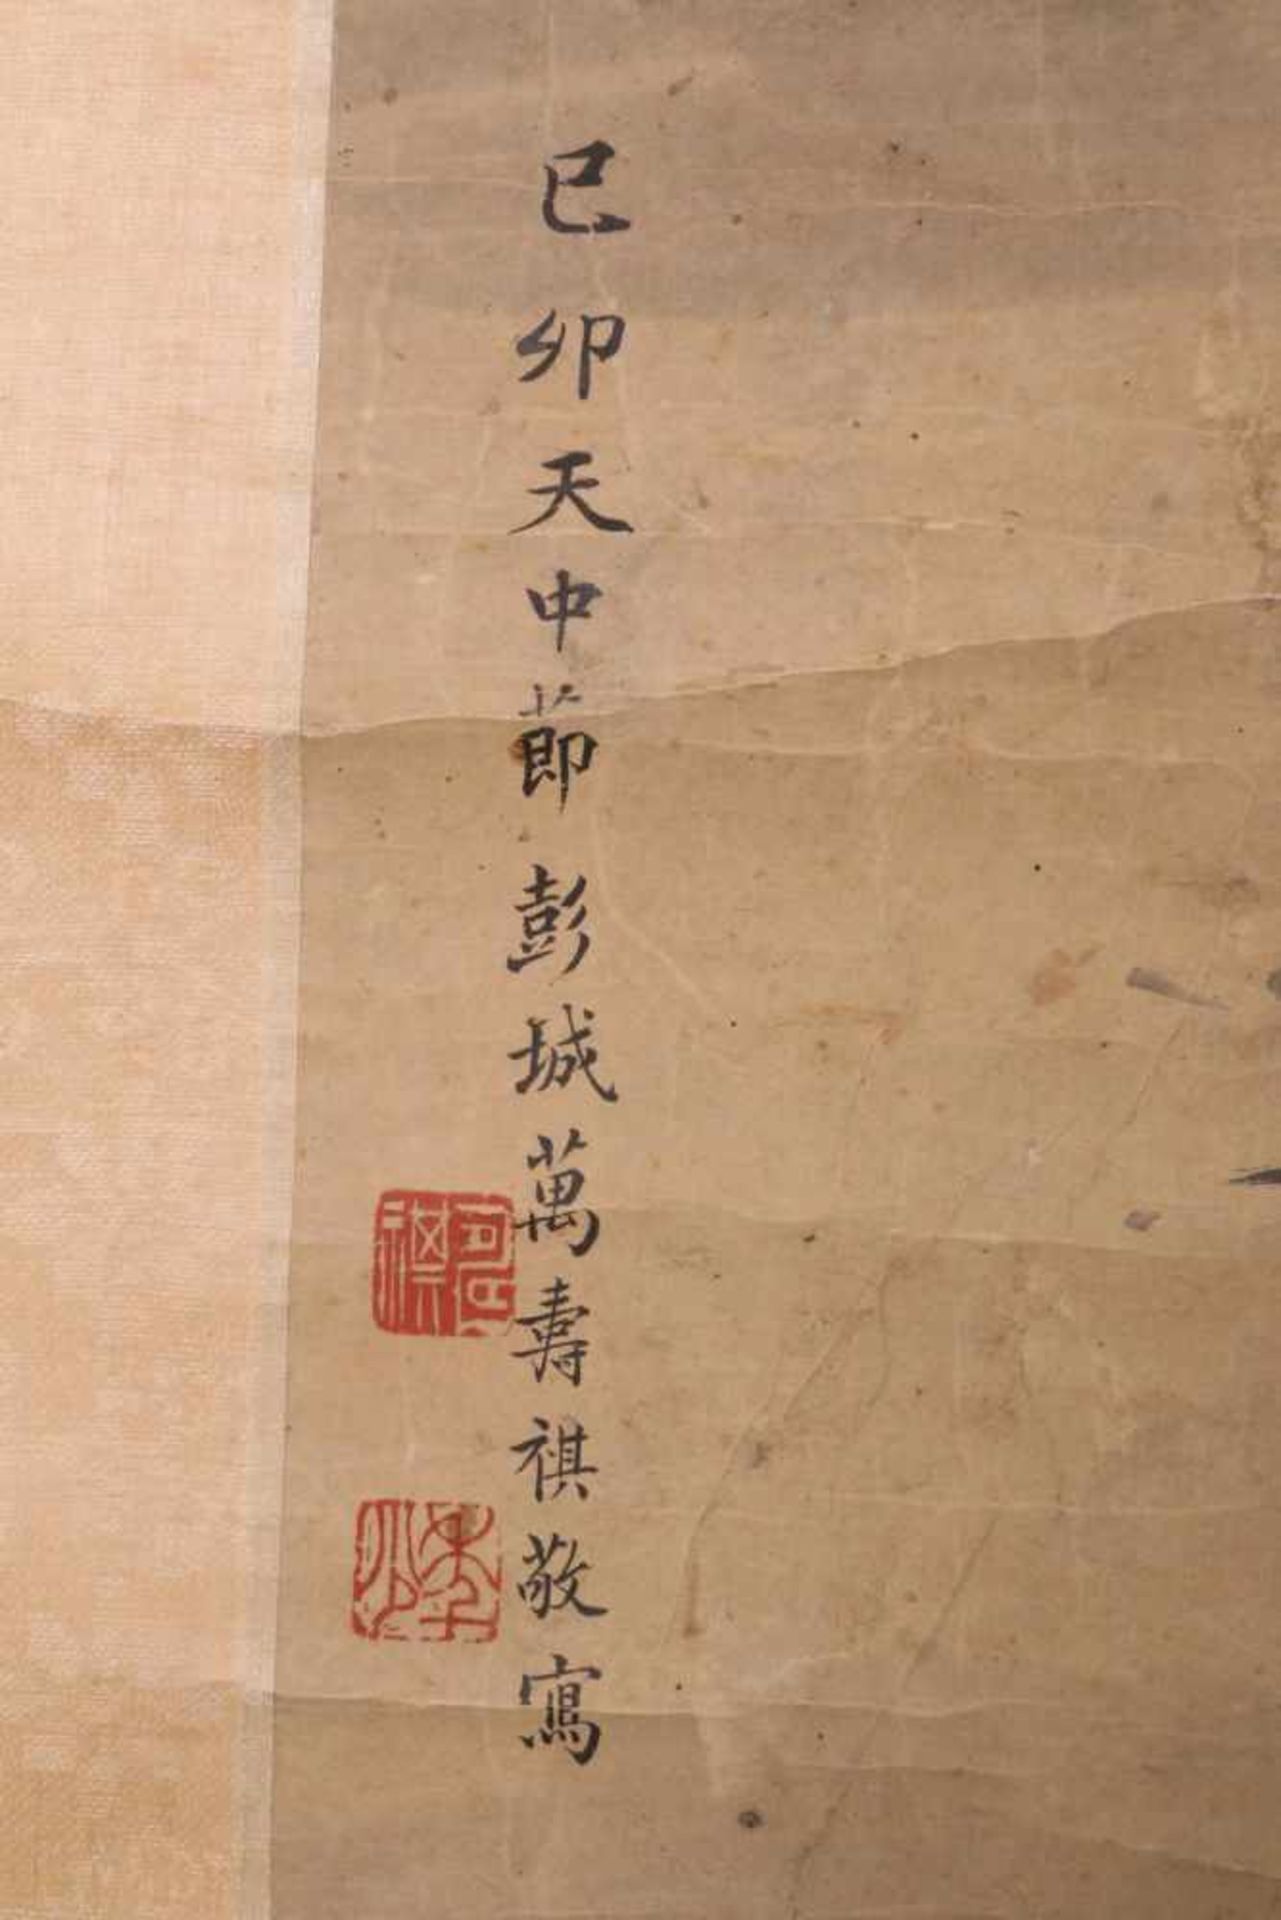 己卯天中節彭城萬壽祺敬寫